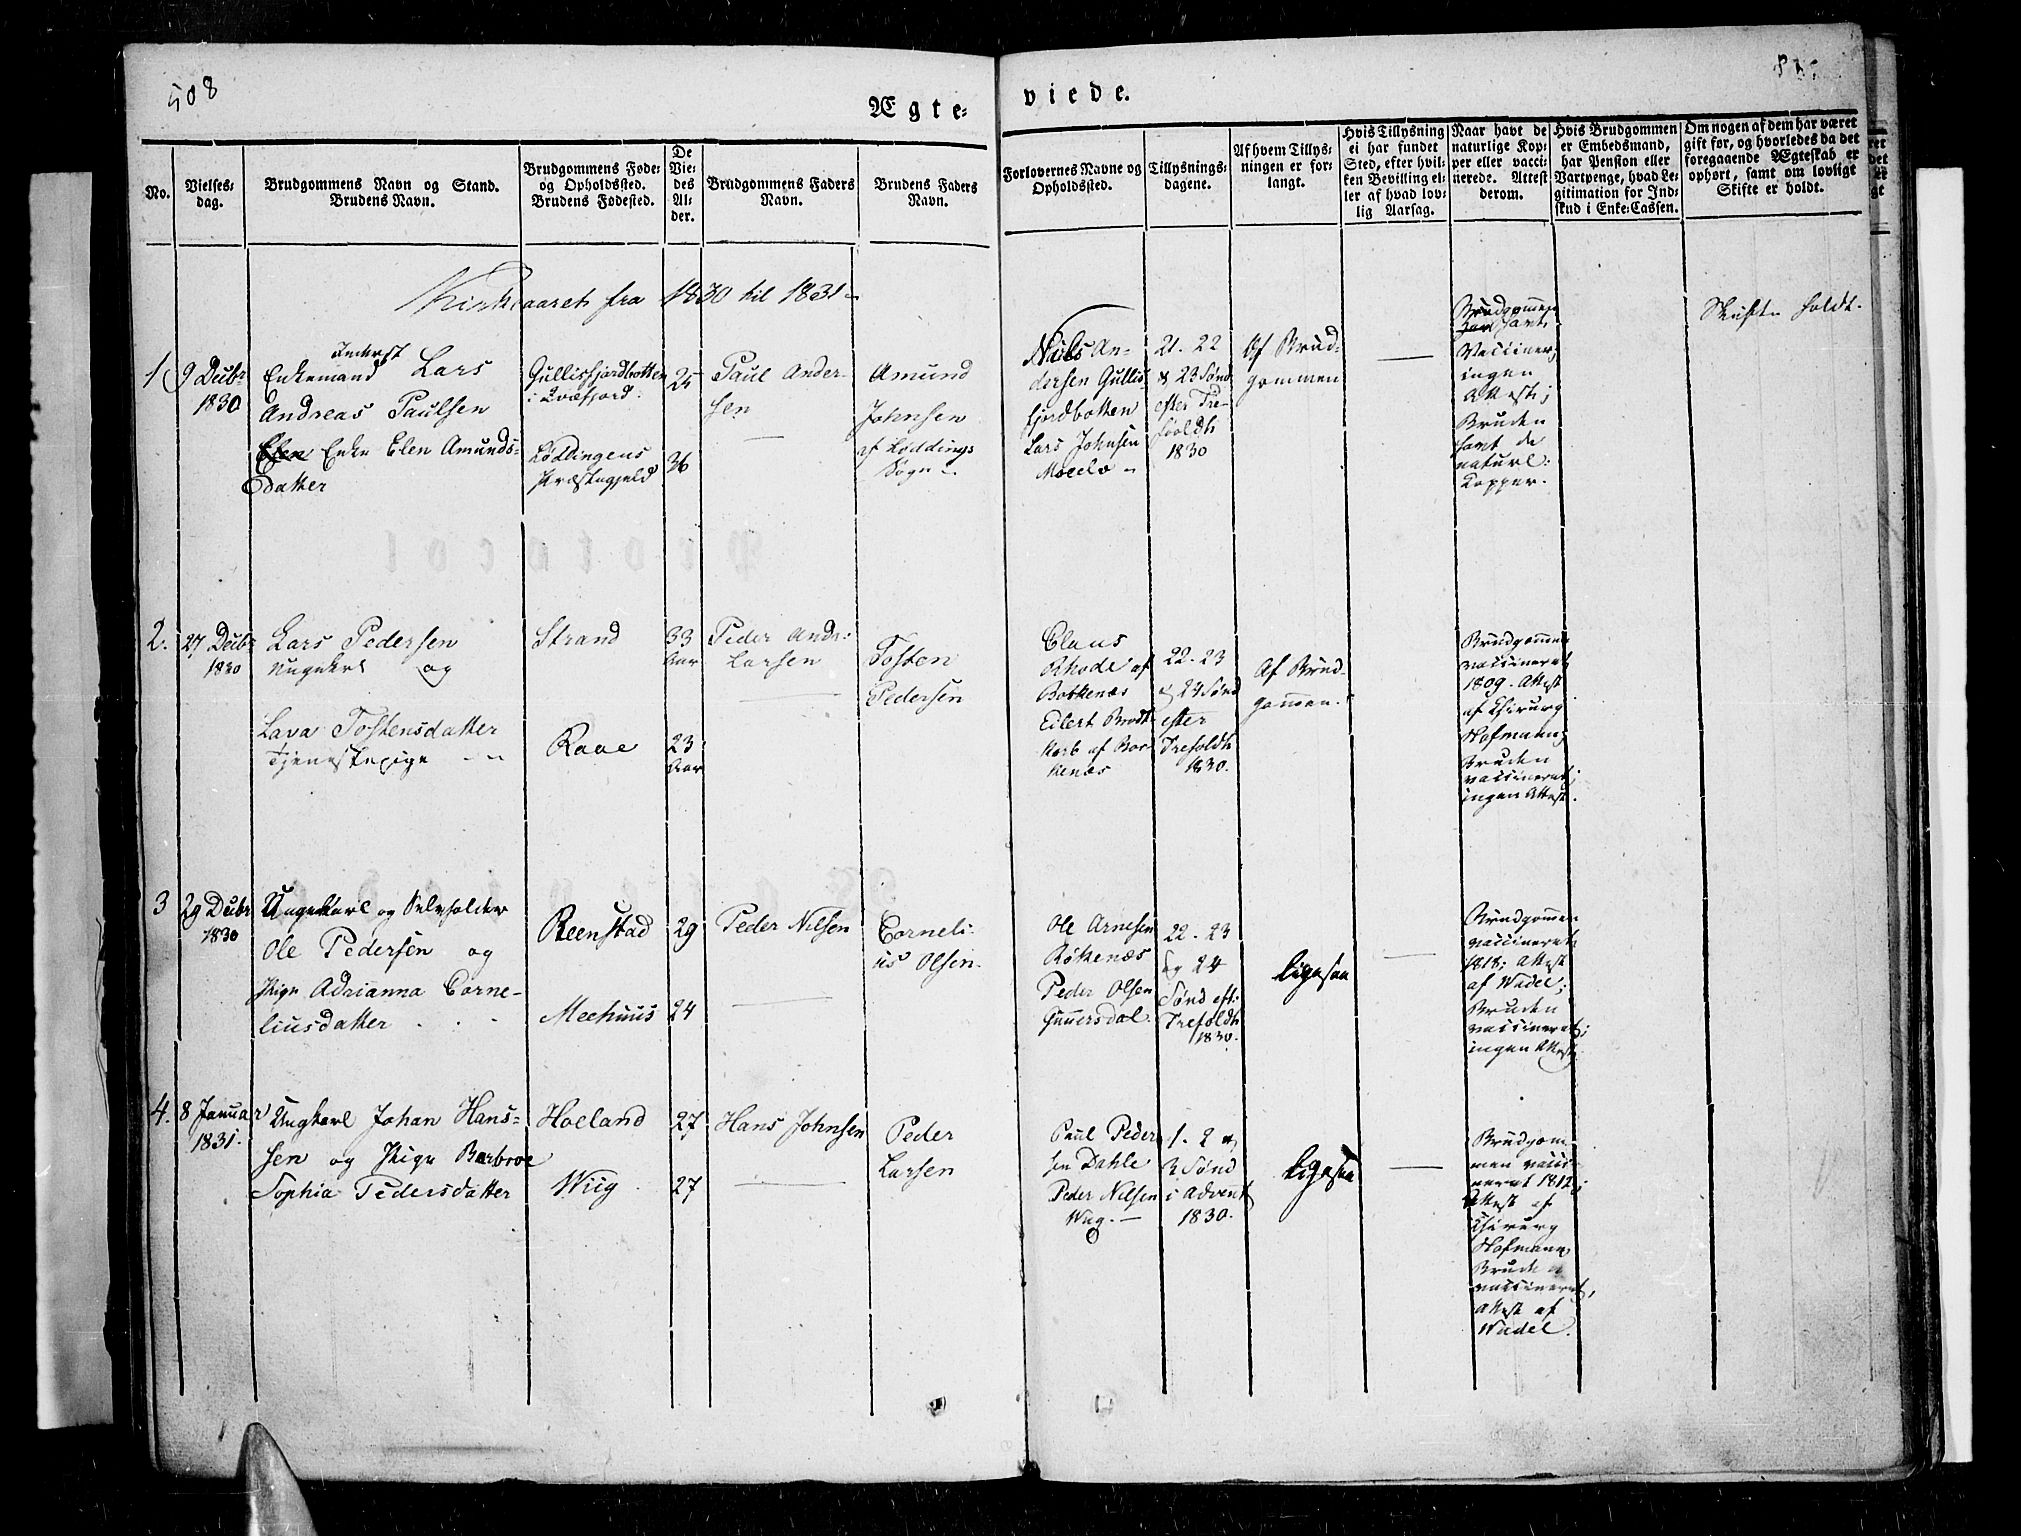 508
Ægte-
viede.
No.
Vielses-
dag.
Brudgommens Navn og Stand.
Brudens Navn.
Brudgommens Føde-
og Opholdssted.
Brudens Fødested.
De
Vie-
des
Al-
der.
Brudgommens Faders
Navn.
Brudens Faders
Navn.
Forlovernes Navne og
Opholdssted.
Tillysnings-
dagene.
Af hvem Tillys-
ningen er for-
langt.
Hvis Tillysning
ei har fundet
Sted, efter hvil-
ken Bevilling el-
ler af hvad lov-
lig Aarsag.
Naar havt de
naturlige Kop-
per eller vacci-
nerede. Attest
derom.
Hvis Brudgommen
er Embedsmand,
har Pension eller
Vartpenge, hvad Le-
gitimation for Ind-
skud i Enke-Cassen.
Om nogen af dem har været
gift før, og hvorledes da det
foregaaende Ægteskab er
ophørt, samt om lovligt
Skifte er holdt.
Kirkeaaret fra 1830 til 1831
1
9 Decbr
1830
Inderst
Enkemand Lars
Andreas Paulsen
Enke Elen Amunds-
datter
Gullisfjordbotten
i Qvæfjord.
Lødingens
Præstegjeld
25
36
Paul Ander-
sen
Amund
Johnsen
af Løddings
Sogn
Niels An-
dersen Gullis
fjordbotten
Lars Johnsen
21. 22
& 23 Sønd
efter Tre-
foldh
1830
Af Brud-
gommen
Brudgommen
havt
Vacciner;
ingen
Attest;
Bruden
havt de
naturl:
Kopper.
Skifte holdt.
2.
27 Decbr
1830
Lars Pedersen
Ungkarl og
Lava Tostensdatter
Tjenestepige
Strand
Raae
33
Aar
23
Aar
Peder Andr:
Larsen
Tosten
Pedersen
Claus
Rhode af
Botkenæs
Eilert Brodt-
korb af Bor-
kenæs
22. 23
& 24 Sønd
efter
Trefoldh
1830.
Af Brud-
gommen.
Brudgommen
vaccineret
1809. Attest
af Chirurg
Hofmann;
Bruden
vaccineret;
ingen Attest.
3
29 Decbr
1830
Ungekarl og Selvholder
Ole Pedersen og
Pige Adrianna Corne-
liusdatter
Reenstad
Meehuus
29
24
Peder Nilsen
Corneli-
us Olsen
Ole Arnesen
Røkenæs
Peder Olsen
Gunnersdal
22. 23
og 24
Sønd eft:
Trefoldh
1830.
ligesaa
Brudgommen
vaccineret
1818; Attest
af Wadel;
Bruden
vaccineret;
ingen Attest
4.
8 Januar
1831.
Ungkarl Johan Hans-
sen og Pige Barbroe
Sophia Pedersdatter
Hoeland
Wiig
27
27
Hans Johnsen
Peder
Larsen
Paul Peder
sen Dahle
Peder Nilsen
Wiig.
1. 2 &
3 Sønd
i Advent
1830.
ligesaa
Brudgom-
men vacci-
neret 1812;
Attest af
Chirurg
Hofmann,
Bruden
vaccineret,
Attest af
Wadel.